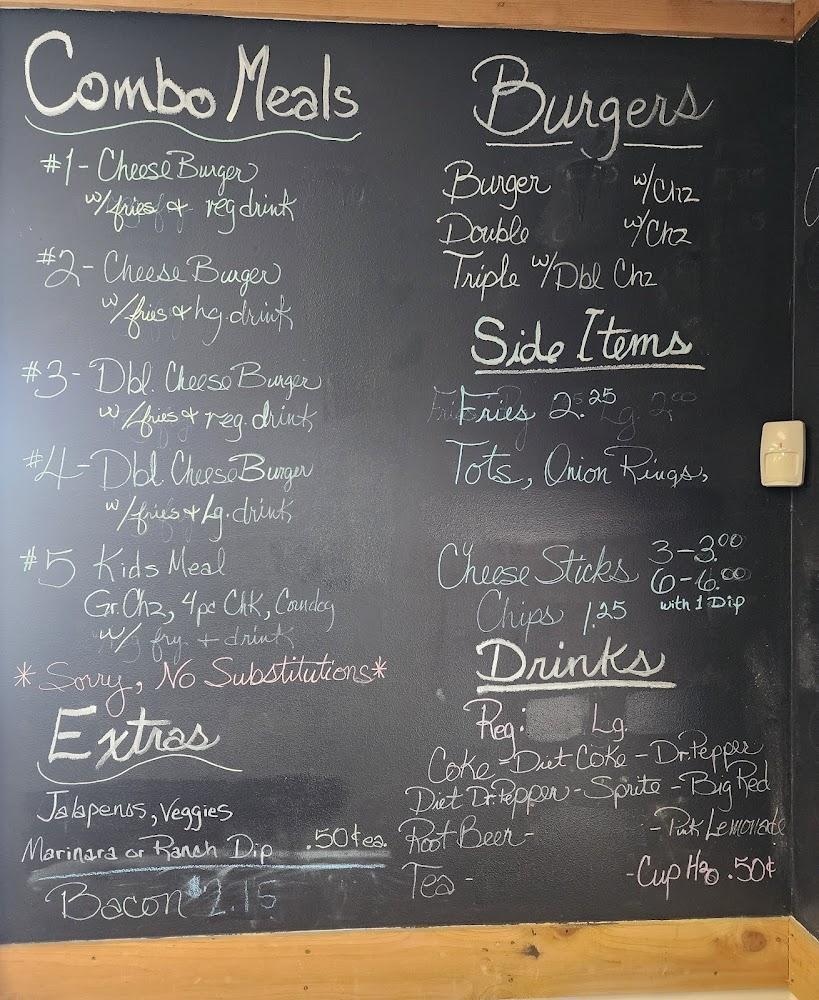 Combo Meals
#1- Cheese Burger
w/fries & reg drink
#2- Cheese Burger
w/fries & lg. drink
#3- Dbl. Cheese Burger
w/fries & reg. drink
#4- Dbl. Cheese Burger
w/fries + Lg. drink
#5 Kids Meal
Gr. Chz, 4pc Chk, Corndog
w/ fry + drink
*Sorry, No Substitutions*
Extras
Jalapenos, Veggies
Marinara or Ranch Dip .50¢ ea.
Bacon $2.15
Burgers
Burger w/Chz
Double w/Chz
Triple w/Dbl Chz
Side Items
Fries 2.25
Tots, Onion Rings,
Cheese Sticks 3-3.00
6-6.00
with 1 Dip
Chips 1.25
Drinks
Reg: Lg.
Coke - Diet Coke - Dr. Pepper
Diet Dr. Pepper - Sprite - Big Red
Root Beer - - Pink Lemonade
Tea - - Cup H2O .50¢